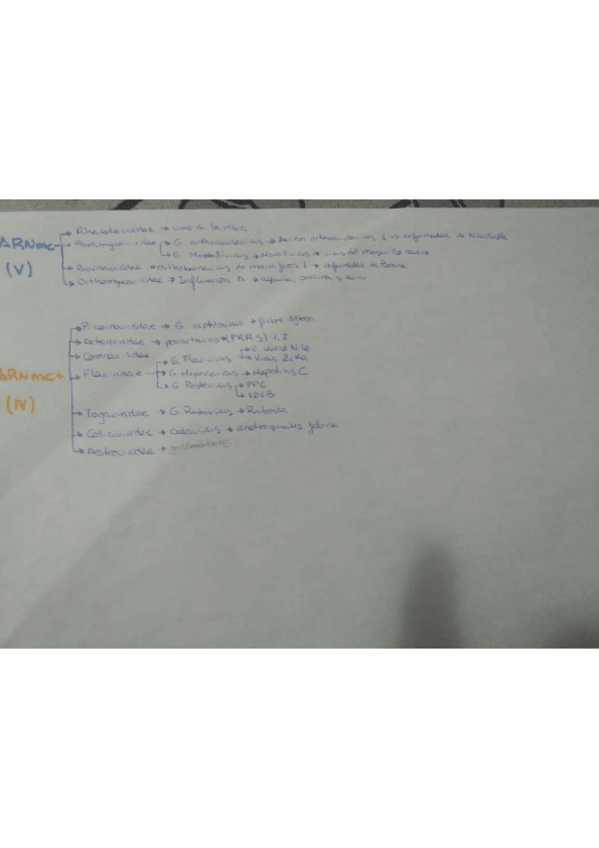 ARNmc-
(V)
Rhabdoviridae → virus de la rabia
Paramyxoviridae → G. orthoavulavirus → Avian orthoavulavirus 1 → enfermedad de Newcastle
G. Morbillivirus → Morbillivirus → virus del moquillo
Bornaviridae → orthobornavirus de mamíferos 1 → enfermedad de Borna
Orthomyxoviridae → Influenza A → equina, porcina y
ARNmc+
(IV)
Picornaviridae → G. aphtovirus → fiebre Aftosa
Arteriviridae → (PRRS) 1, 2
Coronaviridae
Flaviviridae → G. Flavivirus → V. West Nile
Virus Zika
G. Hepacivirus → Hepatitis C
G. Pestivirus → PPC
VDVB
Togaviridae → G. Rubivirus → Rubeola
Caliciviridae → calicivirus → felina
Astroviridae →